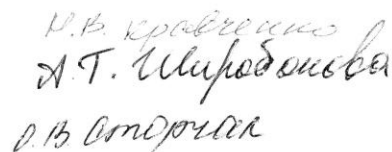 Н.В. Кравченко
А.Т. Широбокова
О.В. Сторчак